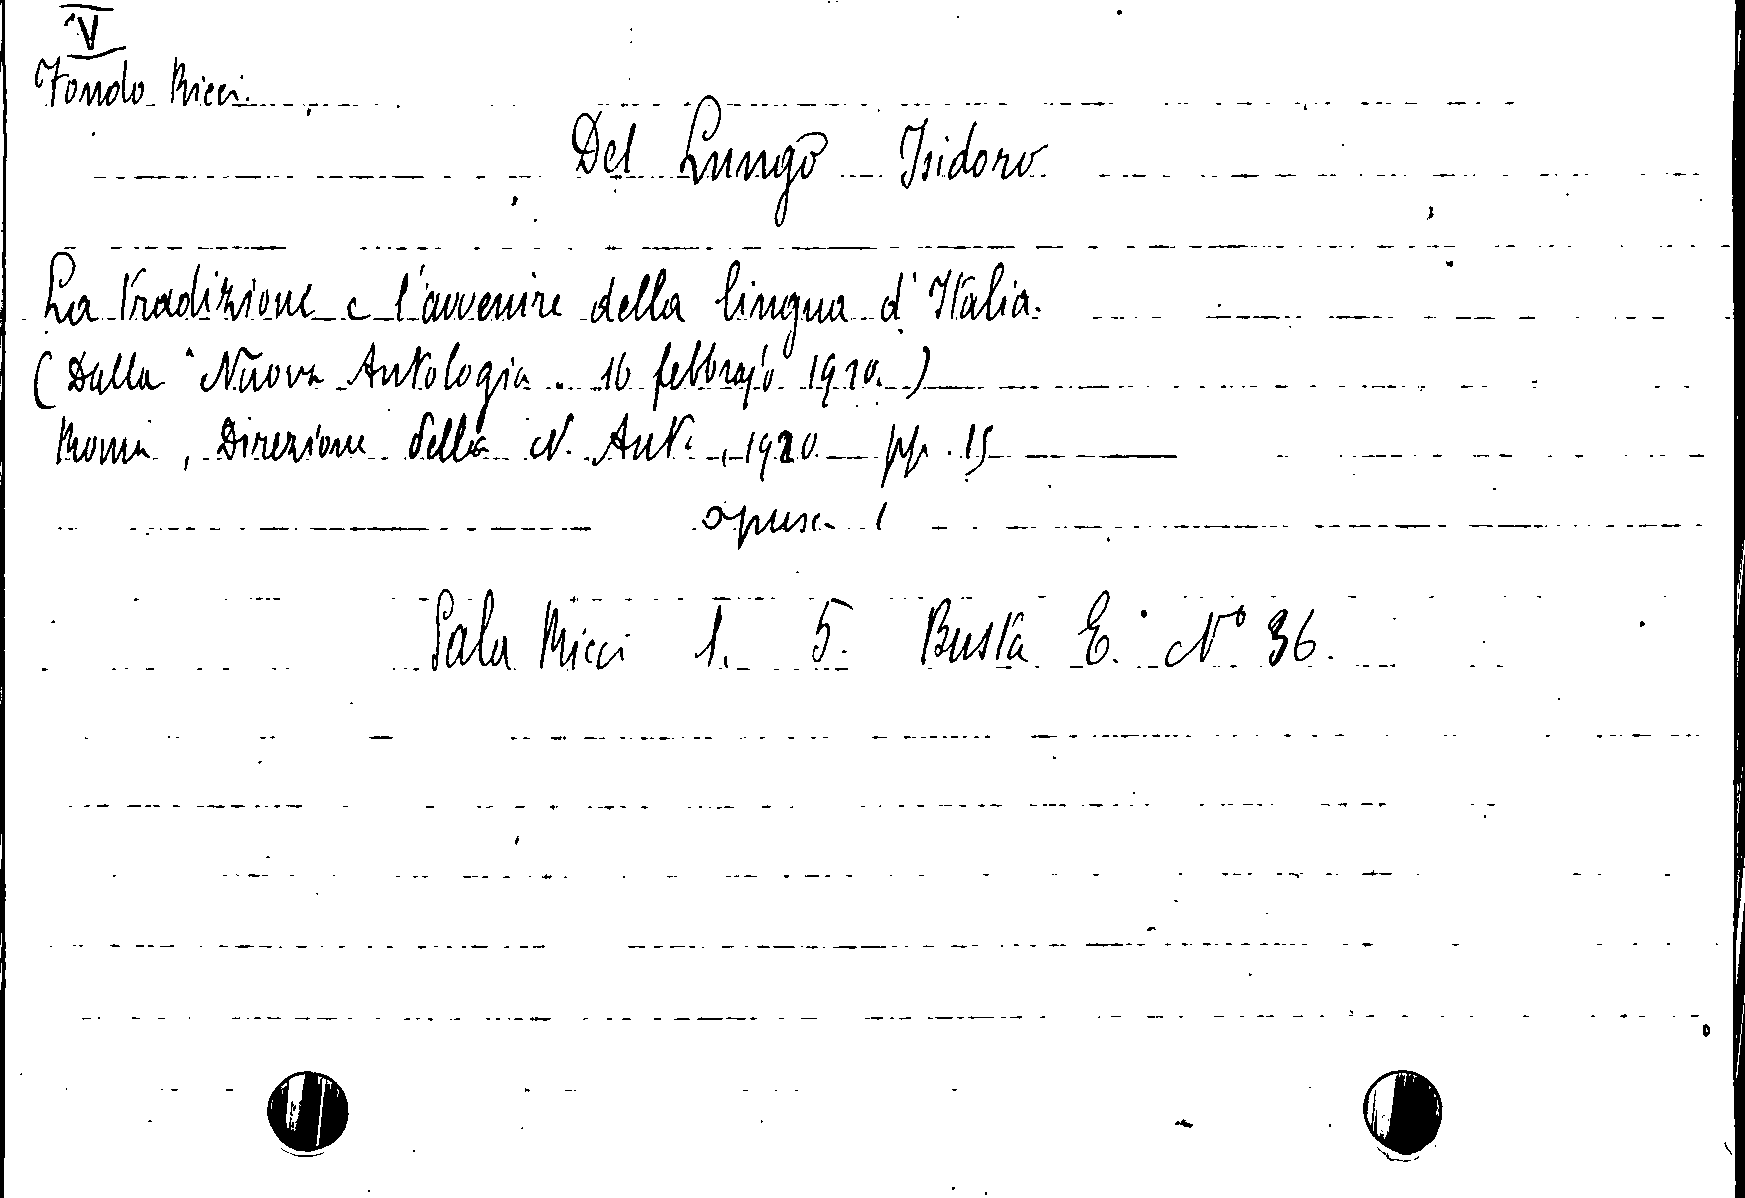 V
Fondo Ricci.
Del Lungo Isidoro
La tradizione e l'avvenire della lingua d'Italia.
(Dalla "Nuova Antologia. 16 febbrajo 1920.)
Roma, Direzione della N. Ant., 1920 pp. 15
opusc. 1
Sala Ricci 1. 5. Busta E. N° 36.